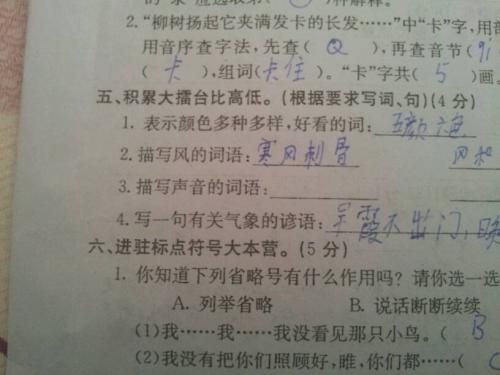 2.“柳树扬起它夹满发卡的长发……”中“卡”字,用音
用音序查字法,先查( Q ),再查音节(qi
( 卡 ),组词(卡住 )。“卡”字共( 5 )画。
五、积累大擂台比高低。(根据要求写词、句)(4分)
1. 表示颜色多种多样,好看的词: 五颜六色
2. 描写风的词语: 寒风刺骨 风和
3. 描写声音的词语:
4. 写一句有关气象的谚语: 早霞不出门,晚
六、进驻标点符号大本营。(5分)
1. 你知道下列省略号有什么作用吗? 请你选一选
A. 列举省略 B. 说话断断续续
(1)我……我……我没看见那只小鸟。( B
(2)我没有把你们照顾好,唯,你们都……( C